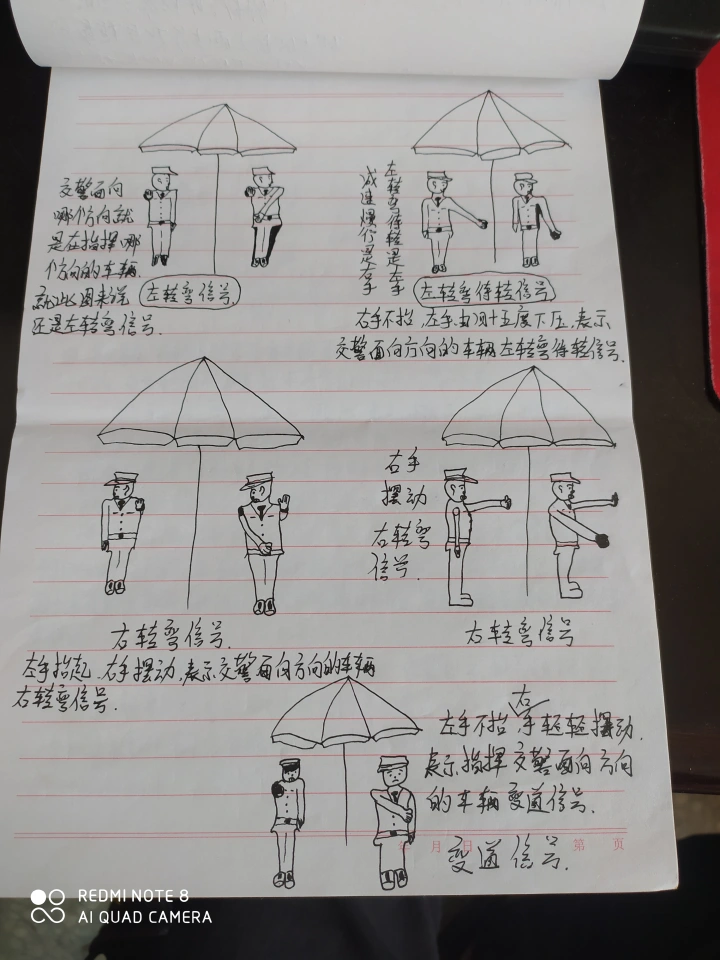 交警面向
哪个方向就
是在指挥哪
个方向的车辆.
就此图来说
还是左转弯信号.
左转弯信号
左转弯待转是左手
减速慢行是右手
左转弯待转信号
右手不抬,左手四十五度下压,表示
交警面向方向的车辆左转弯待转信号.
右手
摆动
右转弯
信号.
右转弯信号.
右转弯信号
左手抬起,右手摆动,表示交警面向方向的车辆
右转弯信号.
左手不抬,右手轻轻摆动.
表示指挥交警面向方向
的车辆变道信号.
变道信号.
年 月 日 第 页
REDMI NOTE 8
AI QUAD CAMERA